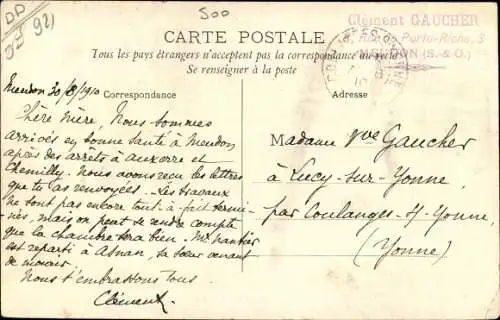 500
Clément GAUCHER
Rue Porto-Riche, 3
MEUDON (S.-& O.)
CARTE POSTALE
Tous les pays étrangers n'acceptent pas la correspondance au recto
Se renseigner à la poste
Correspondance
Adresse
Meudon 30/8/910
Chère Mère, Nous sommes
arrivés en bonne santé à Meudon
après des arrêts à Auxerre et
Chemilly. Nous avons reçu les lettres
que tu as renvoyées. Les travaux
ne sont pas encore tout à fait termi-
nés, mais on peut se rendre compte
que la chambre sera bien. Mr
est reparti à Asnan, sa sœur venant
de mourir.
Nous t'embrassons tous.
Clément.
Madame Vve Gaucher
à Lucy-sur-Yonne
par Coulanges-s/-Yonne
(Yonne)